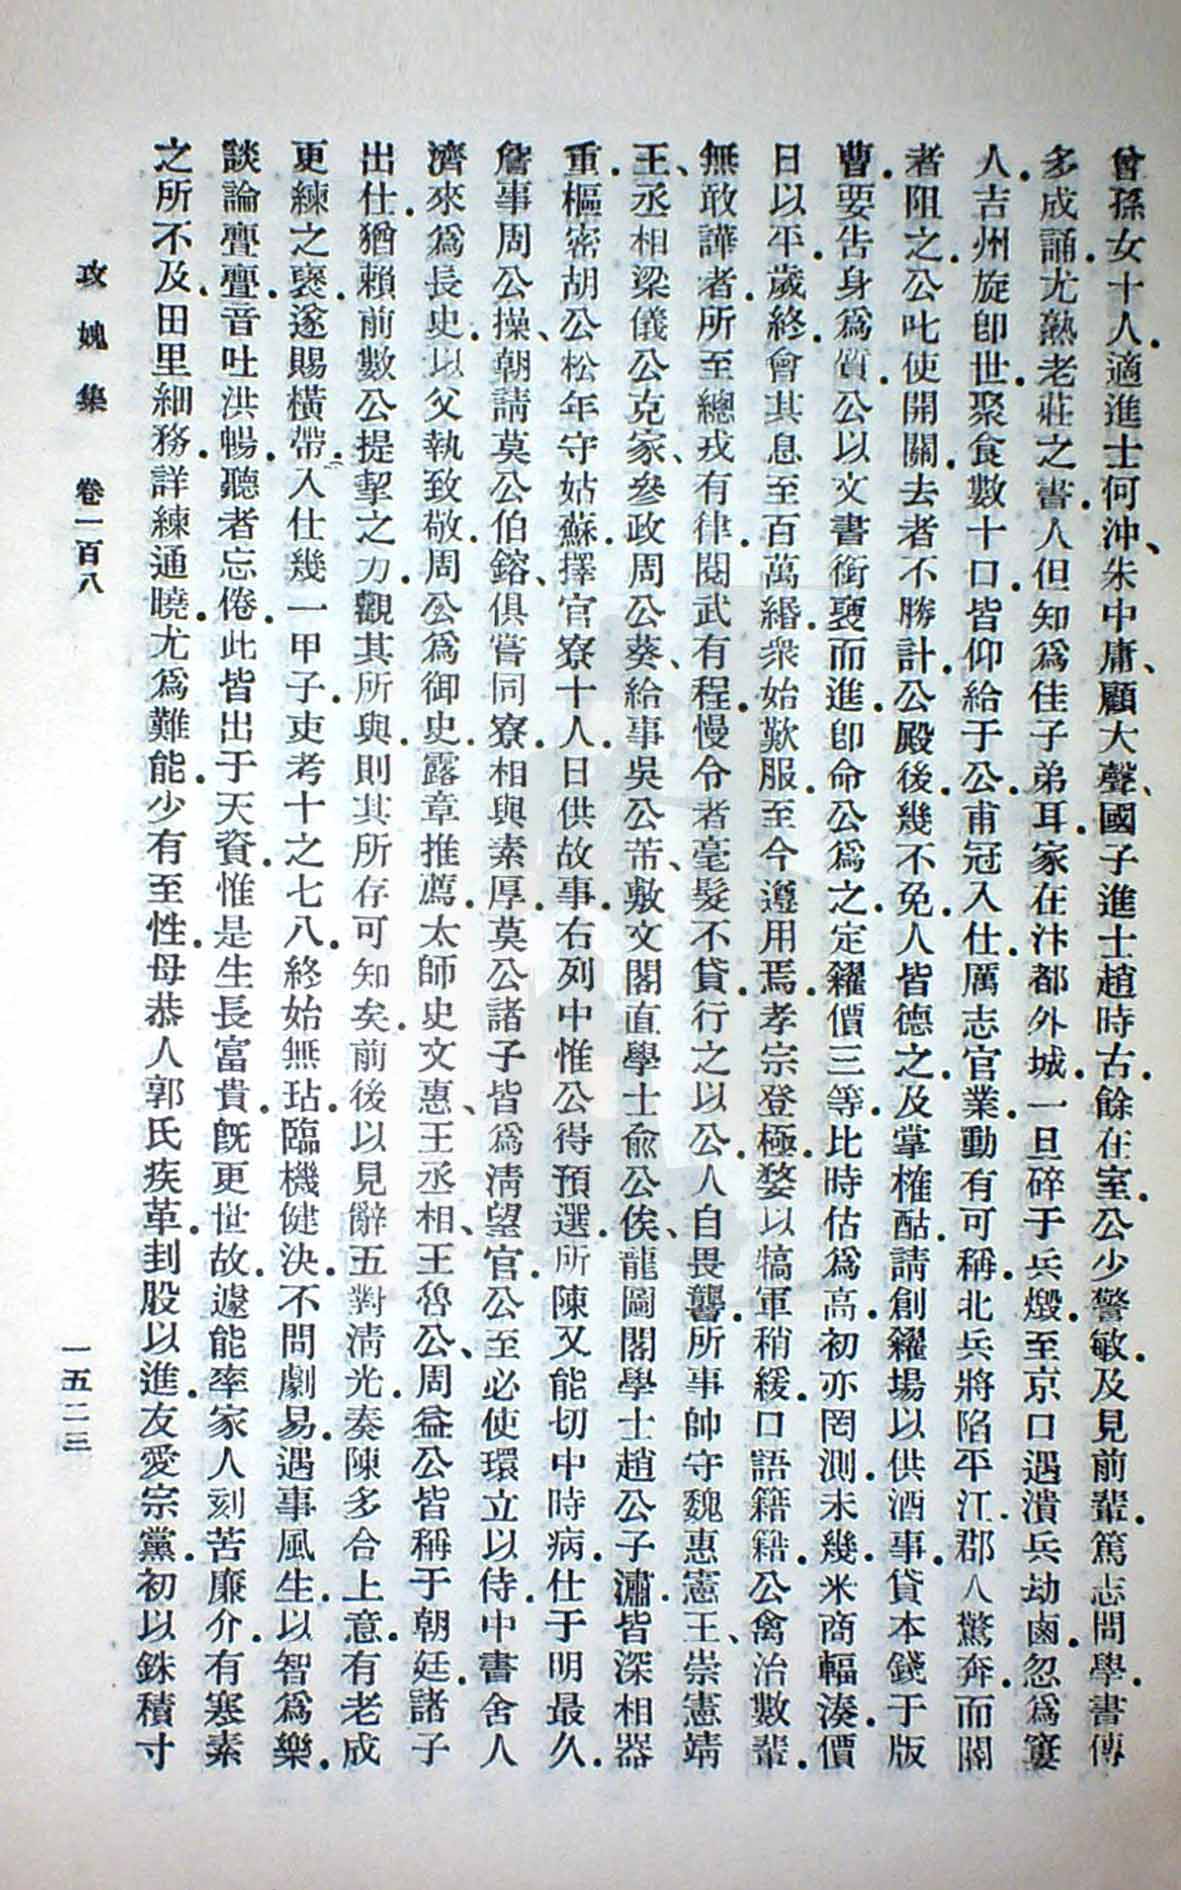 曾孫女十人.適進士何沖、朱中庸、顧大聲、國子進士趙時古.餘在室.公少警敏.及見前輩.篤志問學.書傳
多成誦.尤熟老莊之書.人但知爲佳子弟耳.家在汴都外城.一旦碎于兵燬.至京口遇潰兵劫鹵.忽爲窶
人.吉州旋卽世.聚食數十口.皆仰給于公.甫冠入仕.厲志官業.動有可稱.北兵將陷平江.郡人驚奔.而關
者阻之.公叱使開關.去者不勝計.公殿後.幾不免.人皆德之.及掌榷酤.請創糴場以供酒事.貸本錢于版
曹.要告身爲質.公以文書銜袖而進.卽命公爲之.定糴價三等.比時估爲高.初亦罔測.未幾.米商輻湊.價
日以平.歲終.會其息至百萬緡.衆始歎服.至今遵用焉.孝宗登極.婺以犒軍稍緩.口語籍籍.公禽治數輩.
無敢譁者.所至總戎有律.閱武有程.慢令者毫髮不貸.行之以公.人自畏讋.所事帥守魏惠憲王、崇憲靖
王、王丞相梁儀公克家、參政周公葵、給事吳公芾、敷文閣直學士俞公俟、龍圖閣學士趙公子潚.皆深相器
重.樞密胡公松年守姑蘇.擇官寮十人.日供故事.右列中惟公得預選.所陳又能切中時病.仕于明最久.
詹事周公操、朝請莫公伯鎔、俱嘗同寮.相與素厚.莫公諸子皆爲淸望官.公至必使環立以侍.中書舍人
濟來爲長史.以父執致敬.周公爲御史.露章推薦.太師史文惠、王丞相、王魯公、周益公皆稱于朝廷.諸子
出仕.猶賴前數公提挈之力.觀其所與.則其所存可知矣.前後以見辭五對淸光.奏陳多合上意.有老成
更練之褒.遂賜橫帶.入仕幾一甲子.吏考十之七八.終始無玷.臨機健決.不問劇易.遇事風生.以智爲樂.
談論亹亹.音吐洪暢.聽者忘倦.此皆出于天資.惟是生長富貴.旣更世故.遽能率家人刻苦廉介.有寒素
之所不及.田里細務.詳練通曉.尤爲難能.少有至性.母恭人郭氏疾革.刲股以進.友愛宗黨.初以銖積寸
攻媿集 卷一百八 一五二三